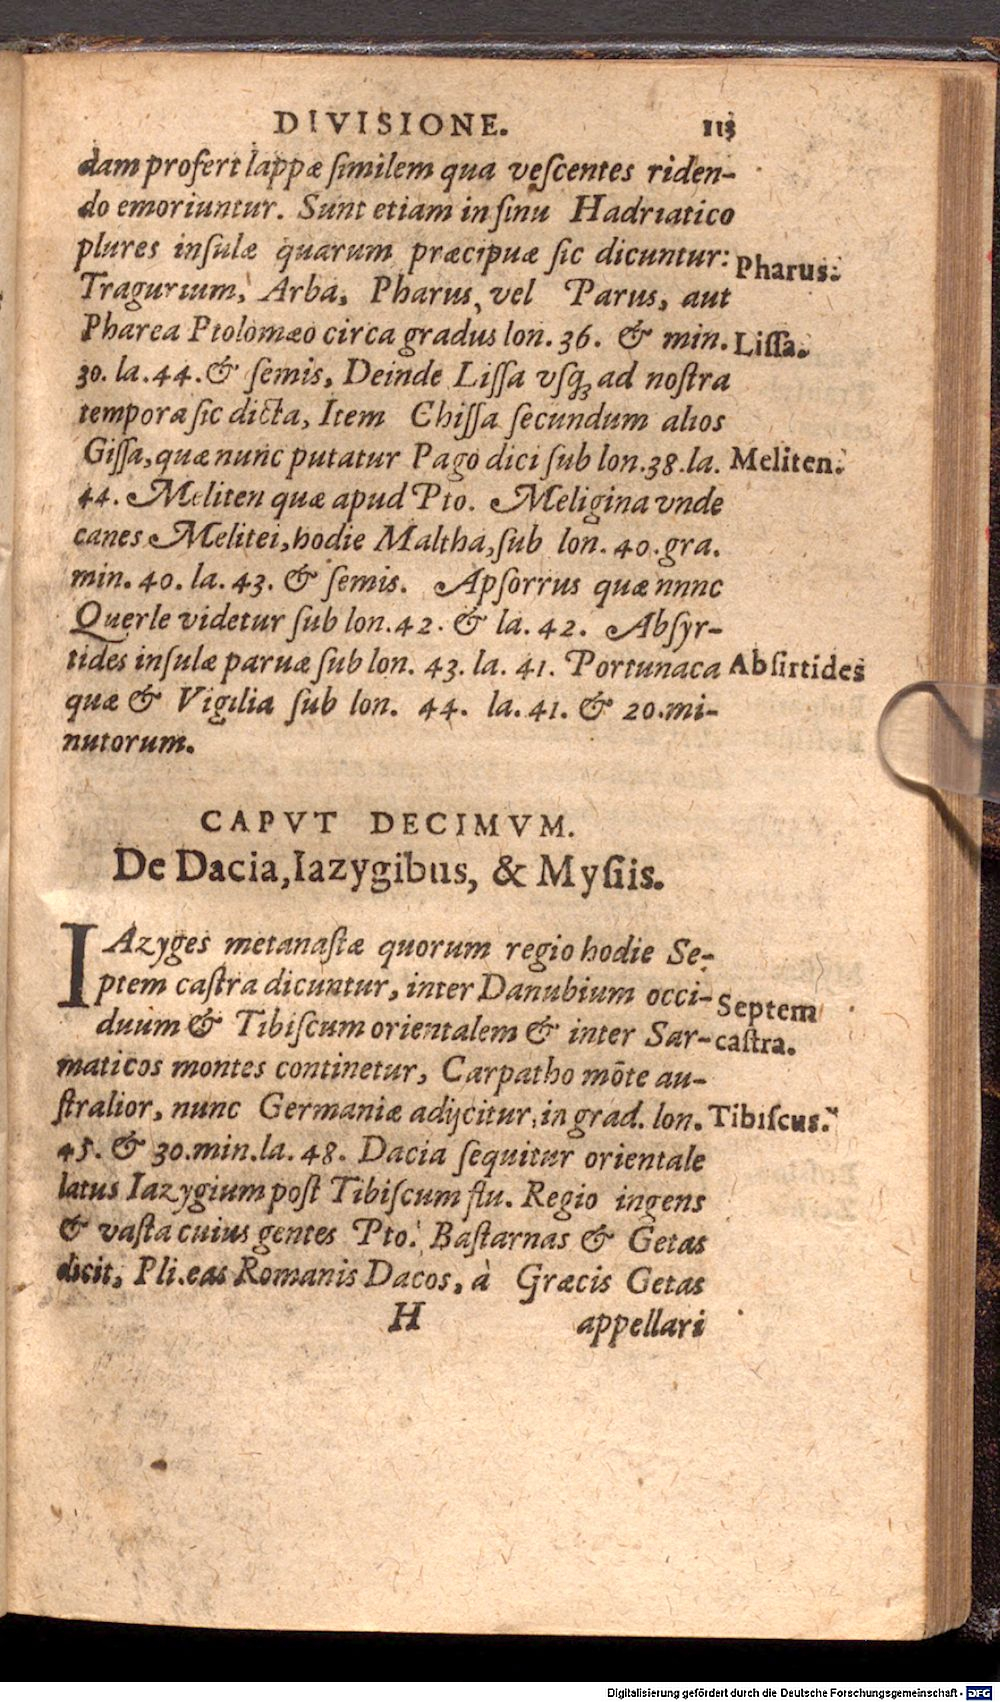 DIVISIONE. 113
dam profert lappæ ſimilem qua veſcentes riden-
do emoriuntur. Sunt etiam in ſinu Hadriatico
plures inſulæ quarum præcipuæ ſic dicuntur:
Pharus.
Tragurium, Arba, Pharus, vel Parus, aut
Pharea Ptolomæo circa gradus lon. 36. & min.
Liſſa.
30. la. 44. & ſemis, Deinde Liſſa vſq; ad noſtra
tempora ſic dicta, Item Chiſſa ſecundum alios
Giſſa, quæ nunc putatur Pago dici ſub lon. 38. la.
Meliten.
44. Meliten quæ apud Pto. Meligina vnde
canes Melitei, hodie Maltha, ſub lon. 40. gra.
min. 40. la. 43. & ſemis. Apſorrus quæ nnnc
Querle videtur ſub lon. 42. & la. 42. Abſyr-
tides inſulæ paruæ ſub lon. 43. la. 41. Portunaca
Abſirtides
quæ & Vigilia ſub lon. 44. la. 41. & 20. mi-
nutorum.
CAPVT DECIMVM.
De Dacia, Iazygibus, & Myſiis.
IAzyges metanaſtæ quorum regio hodie Se-
ptem caſtra dicuntur, inter Danubium occi-
Septem
duum & Tibiſcum orientalem & inter Sar-
caſtra.
maticos montes continetur, Carpatho mōte au-
ſtralior, nunc Germaniæ adijcitur, in grad. lon.
Tibiſcus.
45. & 30. min. la. 48. Dacia ſequitur orientale
latus Iazygium poſt Tibiſcum flu. Regio ingens
& vaſta cuius gentes Pto. Baſtarnas & Getas
dicit, Pli. eas Romanis Dacos, à Græcis Getas
H appellari
Digitalisierung gefördert durch die Deutsche Forschungsgemeinschaft - DFG